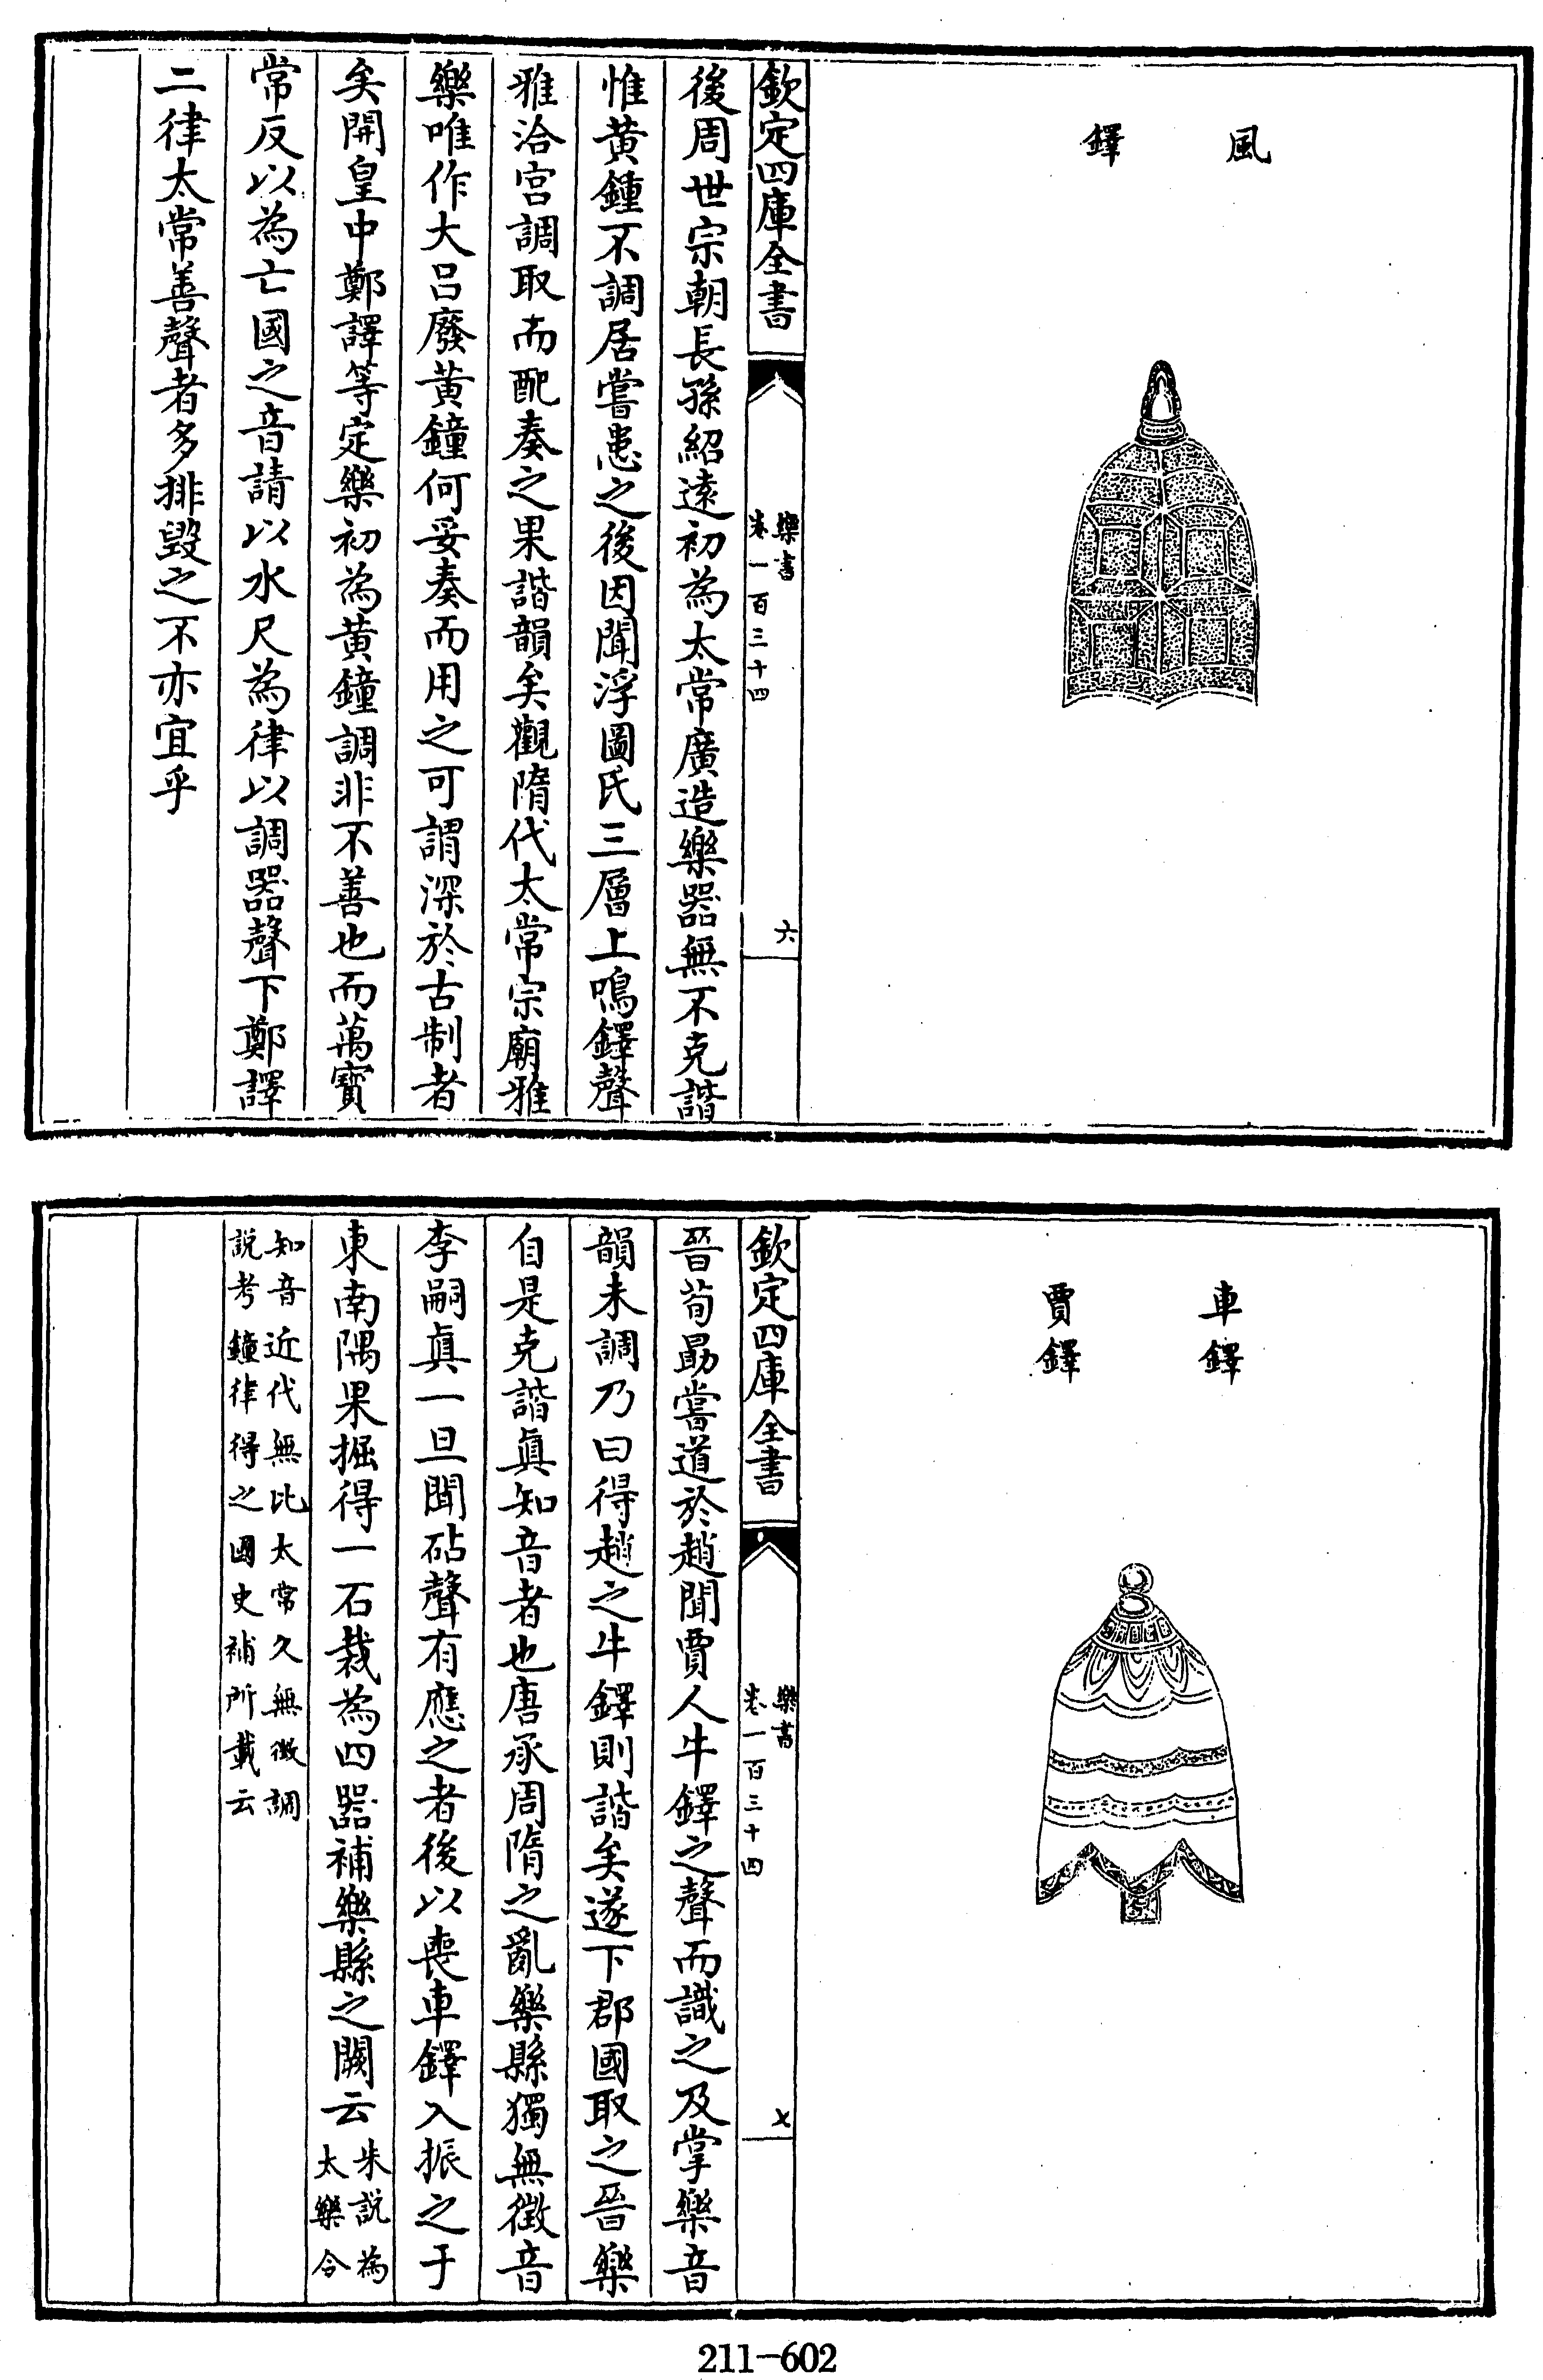 風
鐸
欽定四庫全書
樂書
卷一百三十四
六
後周世宗朝長孫紹逺初為太常廣造樂器無不克諧
惟黃鍾不調居嘗患之後因聞浮圖氏三層上鳴鐸聲
雅洽宮調取而配奏之果諧韻矣觀隋代太常宗廟雅
樂唯作大呂廢黃鐘何妥奏而用之可謂深於古制者
矣開皇中鄭譯等定樂初為黃鐘調非不善也而萬寳
常反以為亡國之音請以水尺為律以調器聲下鄭譯
二律太常善聲者多排毀之不亦宜乎
車鐸
賈鐸
欽定四庫全書
樂書
卷一百三十四
七
晉荀勗嘗道於趙聞賈人牛鐸之聲而識之及掌樂音
韻未調乃曰得趙之牛鐸則諧矣遂下郡國取之晉樂
自是克諧眞知音者也唐承周隋之亂樂縣獨無徵音
李嗣眞一旦聞砧聲有應之者後以喪車鐸入振之于
東南隅果掘得一石裁為四器補樂縣之闕云
朱說為
太樂令
知音近代無比太常久無徵調
說考鐘律得之國史補所載云
211-602